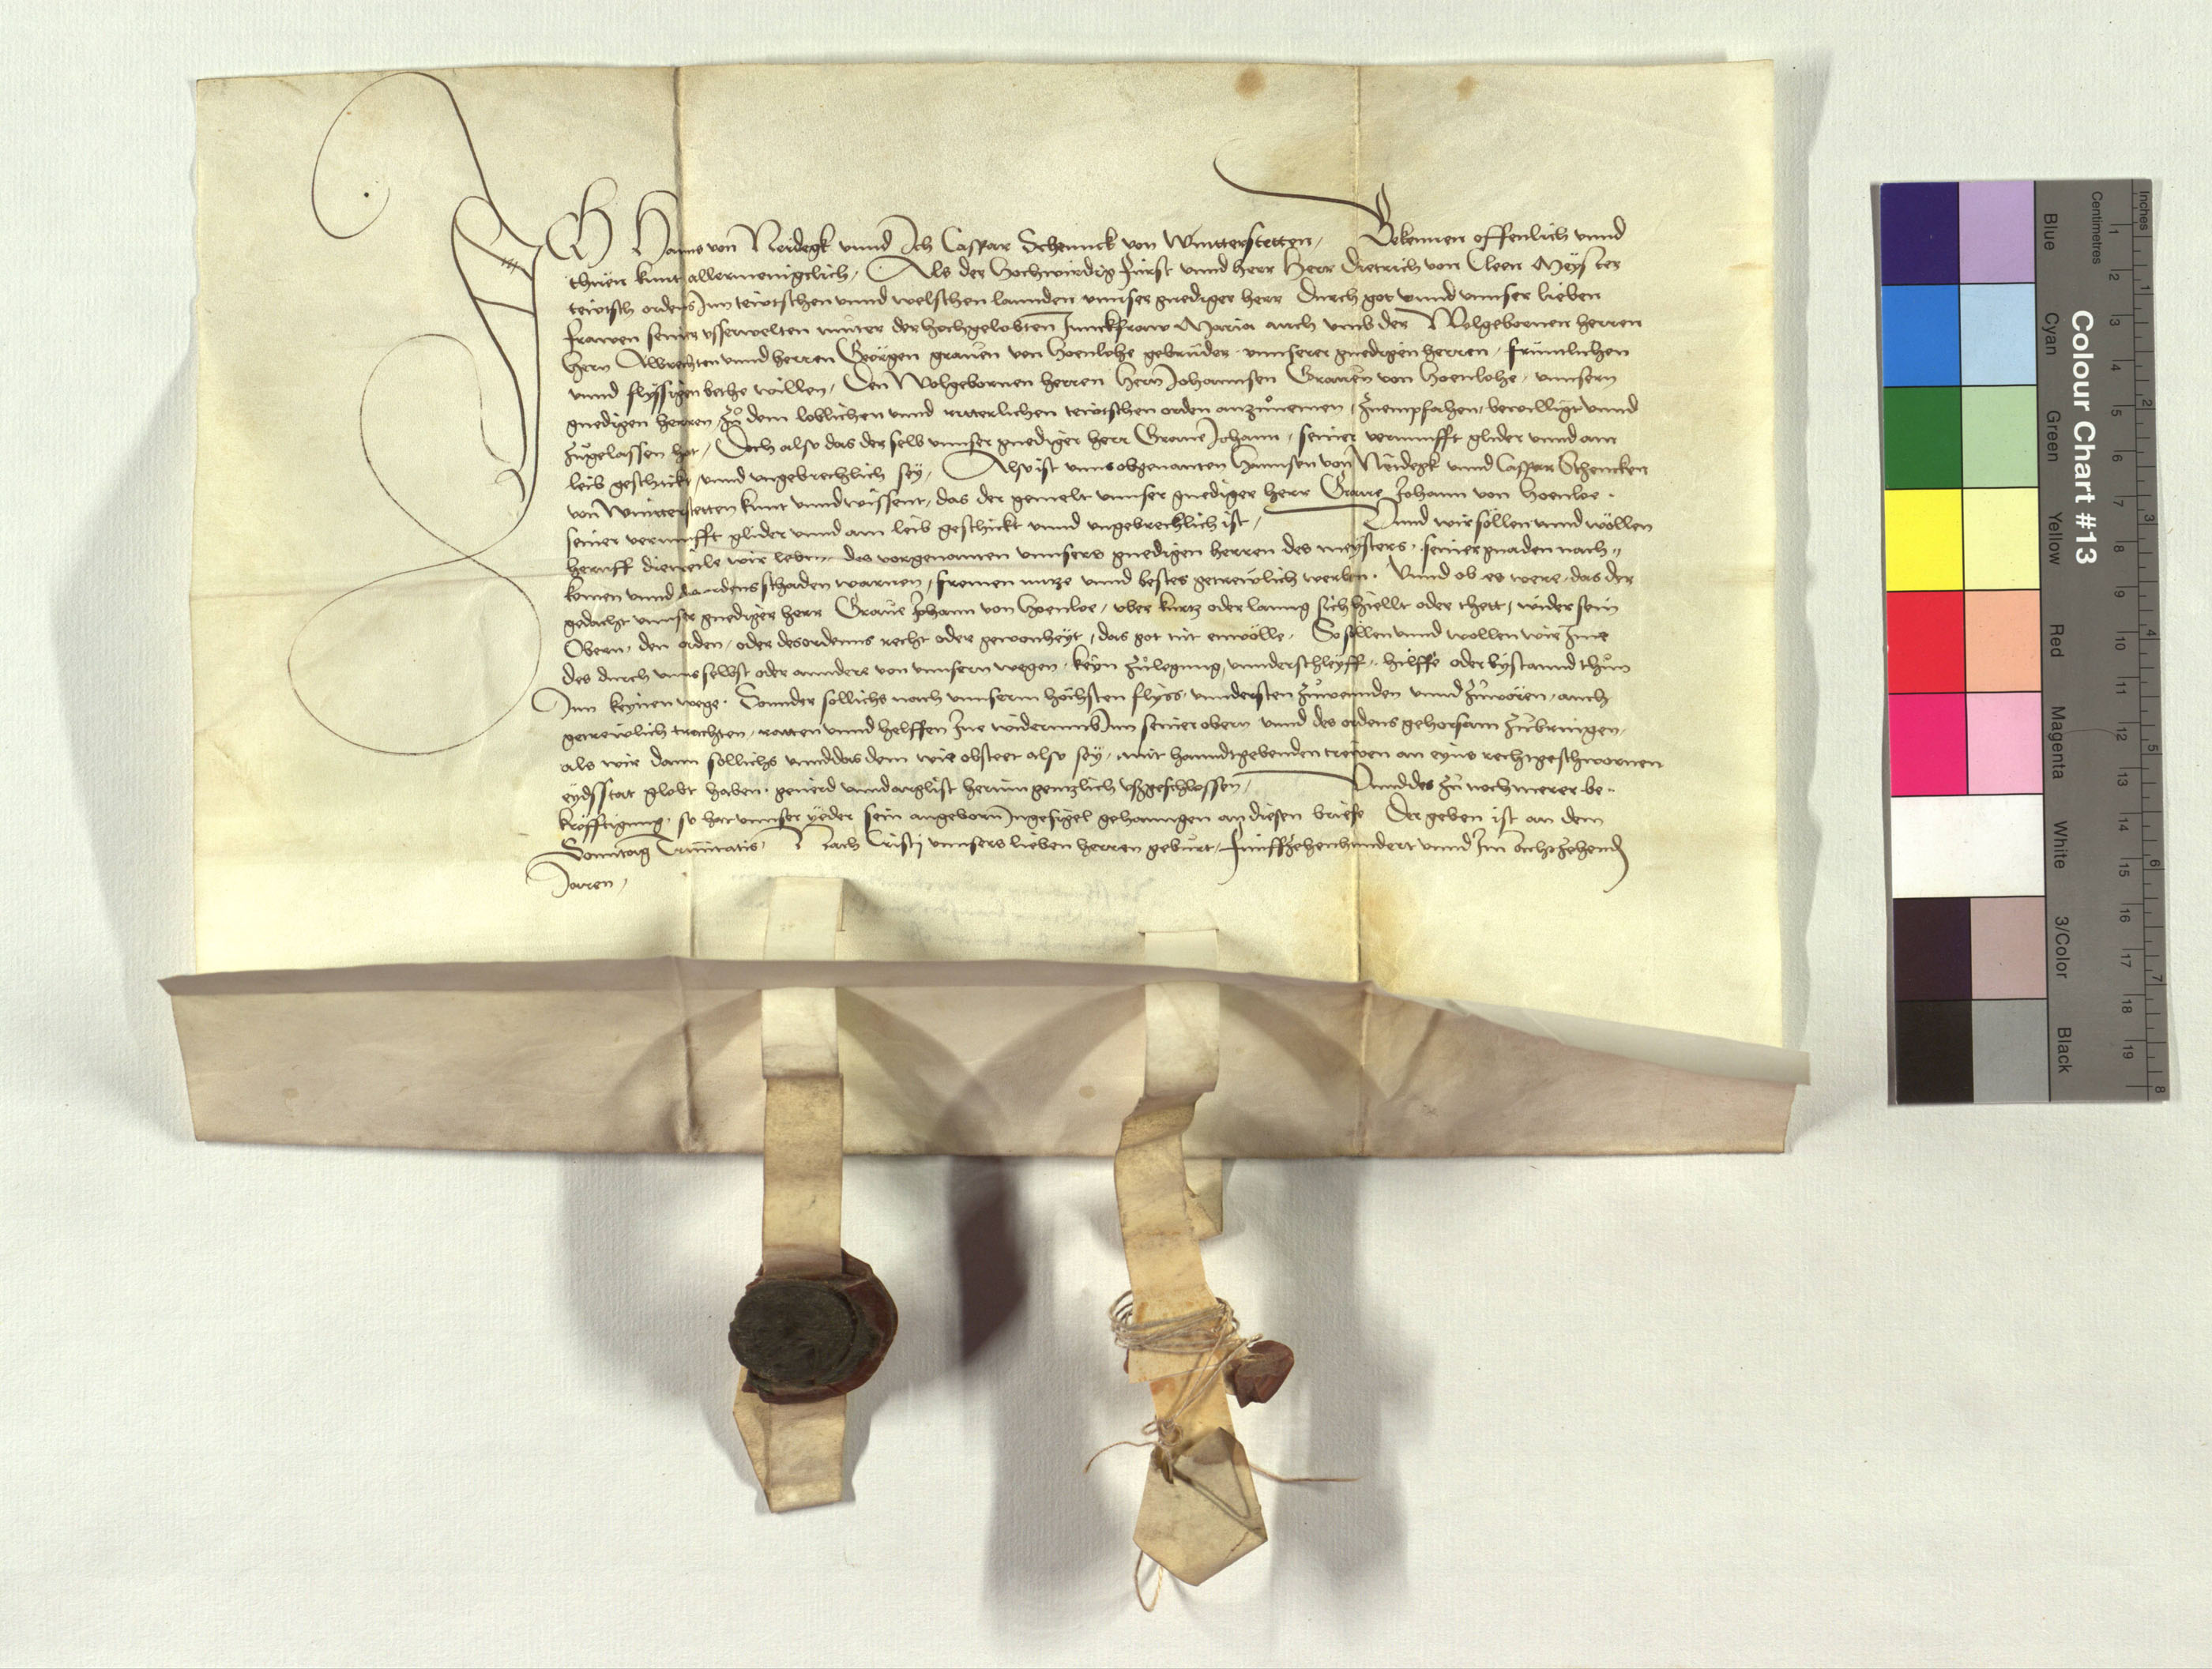 ICH Hanns von Neidegk unnd Ich Caspar Schennck von Wintterstetten, Bekennen offenlich unnd
thuen kunt allermenigclich, Als der Hochwirdig Fürst unnd herr Herr Dietrich von Cleen Meyster
teütsch ordens Inn teütschen unnd welschen lannden unnser gnediger herr Durch got unnd unnser lieben
frawen seiner usserwelten muter der hochgelobten Junckfraw Maria auch umb der Wolgebornen herren
Hern Albrechten unnd herren Geörgen graven von Hoenlohe gebrüder unnserer gnedigen herren, früntlichen
unnd flyssigen bethe willen, Den Wolgebornen herren Hern Johannsen Graven von Hoenlohe, unnsern
gnedigen herren, Zů dem loblichen unnd ritterlichen teütschen orden anzůnemen, Zuempfahen, bewilligt unnd
Zůgelassen hat, Doch also das der selb unnser gnediger herr Grave Johann, seiner vernunfft glider unnd am
leib geschickt, unnd ungebrechlich sey, Also ist unns obgenanten Hannsen von Neidegk unnd Caspar Schencken
von Wintterstetten kunt unnd wissent, das der gemelt unnser gnediger herr Grave Johann von Hoenloe.
seiner vernunfft glider unnd am leib geschickt unnd ungebrechlich ist, Unnd wir söllen unnd wöllen
heruff dieweile wir leben des vorgenanten unnsers gnedigen herren des meysters, seiner gnaden nach"
komen unnd des ordens schaden warnen, fromen nutze unnd bestes getreülich werben. Unnd ob es were, das der
gedacht unnser gnediger herr Grave Johann von Hoenloe, uber kurtz oder lanng sich hiellt oder thett, wider sein
Obern, den orden, oder des ordenns recht oder gewonheyt, das got nit enwölle, So söllen unnd wollen wir Ime
des durch unns selbst oder anndere von unnsern wegen, keyn Zůlegung, unnderschleyff, hilffe oder bystannd thůn
Inn keynen wege. Sonnder sollichs nach unnserm höchsten flyss, unndersten Zůwennden unnd Zůwören, auch
getreülich trachten, ratten unnd helffen Ine widerumb Inn seiner obern unnd des ordens gehorsam Zůbringen,
als wir dann söllichs unnd das dem wie obsteet also sey, mit hanndtgebenden trewen an eyns rechtgeschwornen
eydsstat globt haben. geverd unnd arglist herinn gentzlich ußgeschlossen, Unnd des Zů noch merer be-
kröfftigung, so hat unnser yeder sein angeborn Ingesigel gehanngen an diesen briefe Der geben ist an dem
Sonntag Trinitatis, Nach Cristi unnsers lieben herren geburt, Fünffzehenhundert unnd Im achtzehenden
Jaren,
Colour Chart #13
Blue
Cyan
Green
Yellow
Red
Magenta
White
3/Color
Black
Centimetres
Inches
1
2
3
4
5
6
7
8
9
10
11
12
13
14
15
16
17
18
19
1
2
3
4
5
6
7
8